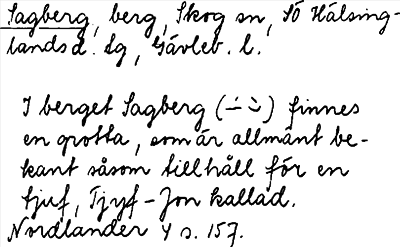 Sagberg, berg, Skog sn, SÖ Hälsing-
lands d. sg, Gävleb. l.
I berget Sagberg (–́ –̀) finnes
en grotta, som är allmänt be-
kant såsom tillhåll för en
tjuf, Tjyf-Jon kallad.
Nordlander 4 s. 157.